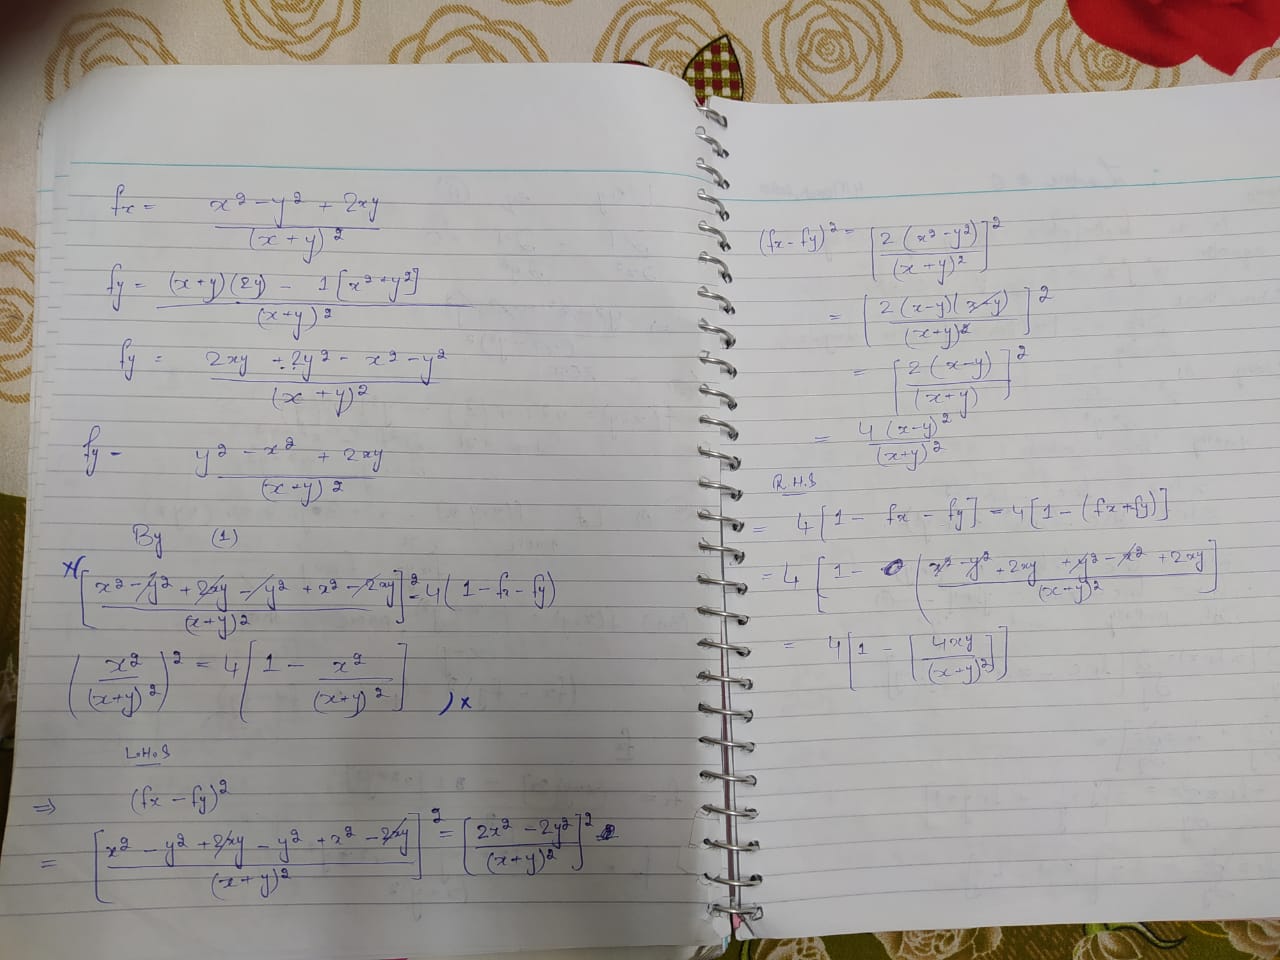 fx = x² - y² + 2xy / (x + y)²
fy = (x+y)(2y) - 1[x²+y²] / (x+y)²
fy = 2xy + 2y² - x² - y² / (x + y)²
fy = y² - x² + 2xy / (x+y)²
By (1)
x( [x² - y² + 2xy - y² + x² - 2xy / (x+y)²]² = 4(1 - fx - fy)
(x² / (x+y)²)² = 4[1 - x² / (x+y)²] )x
L.H.S
⇒ (fx - fy)²
= [x² - y² + 2xy - y² + x² - 2xy / (x+y)²]² = [2x² - 2y² / (x+y)²]²
(fx - fy)² = [2(x² - y²) / (x+y)²]²
= [2(x-y)(x+y) / (x+y)²]²
= [2(x-y) / (x+y)]²
= 4(x-y)² / (x+y)²
R.H.S
= 4[1 - fx - fy] = 4[1 - (fx+fy)]
= 4[1 - (x² - y² + 2xy + y² - x² + 2xy / (x+y)²]
= 4[1 - [4xy / (x+y)²]]